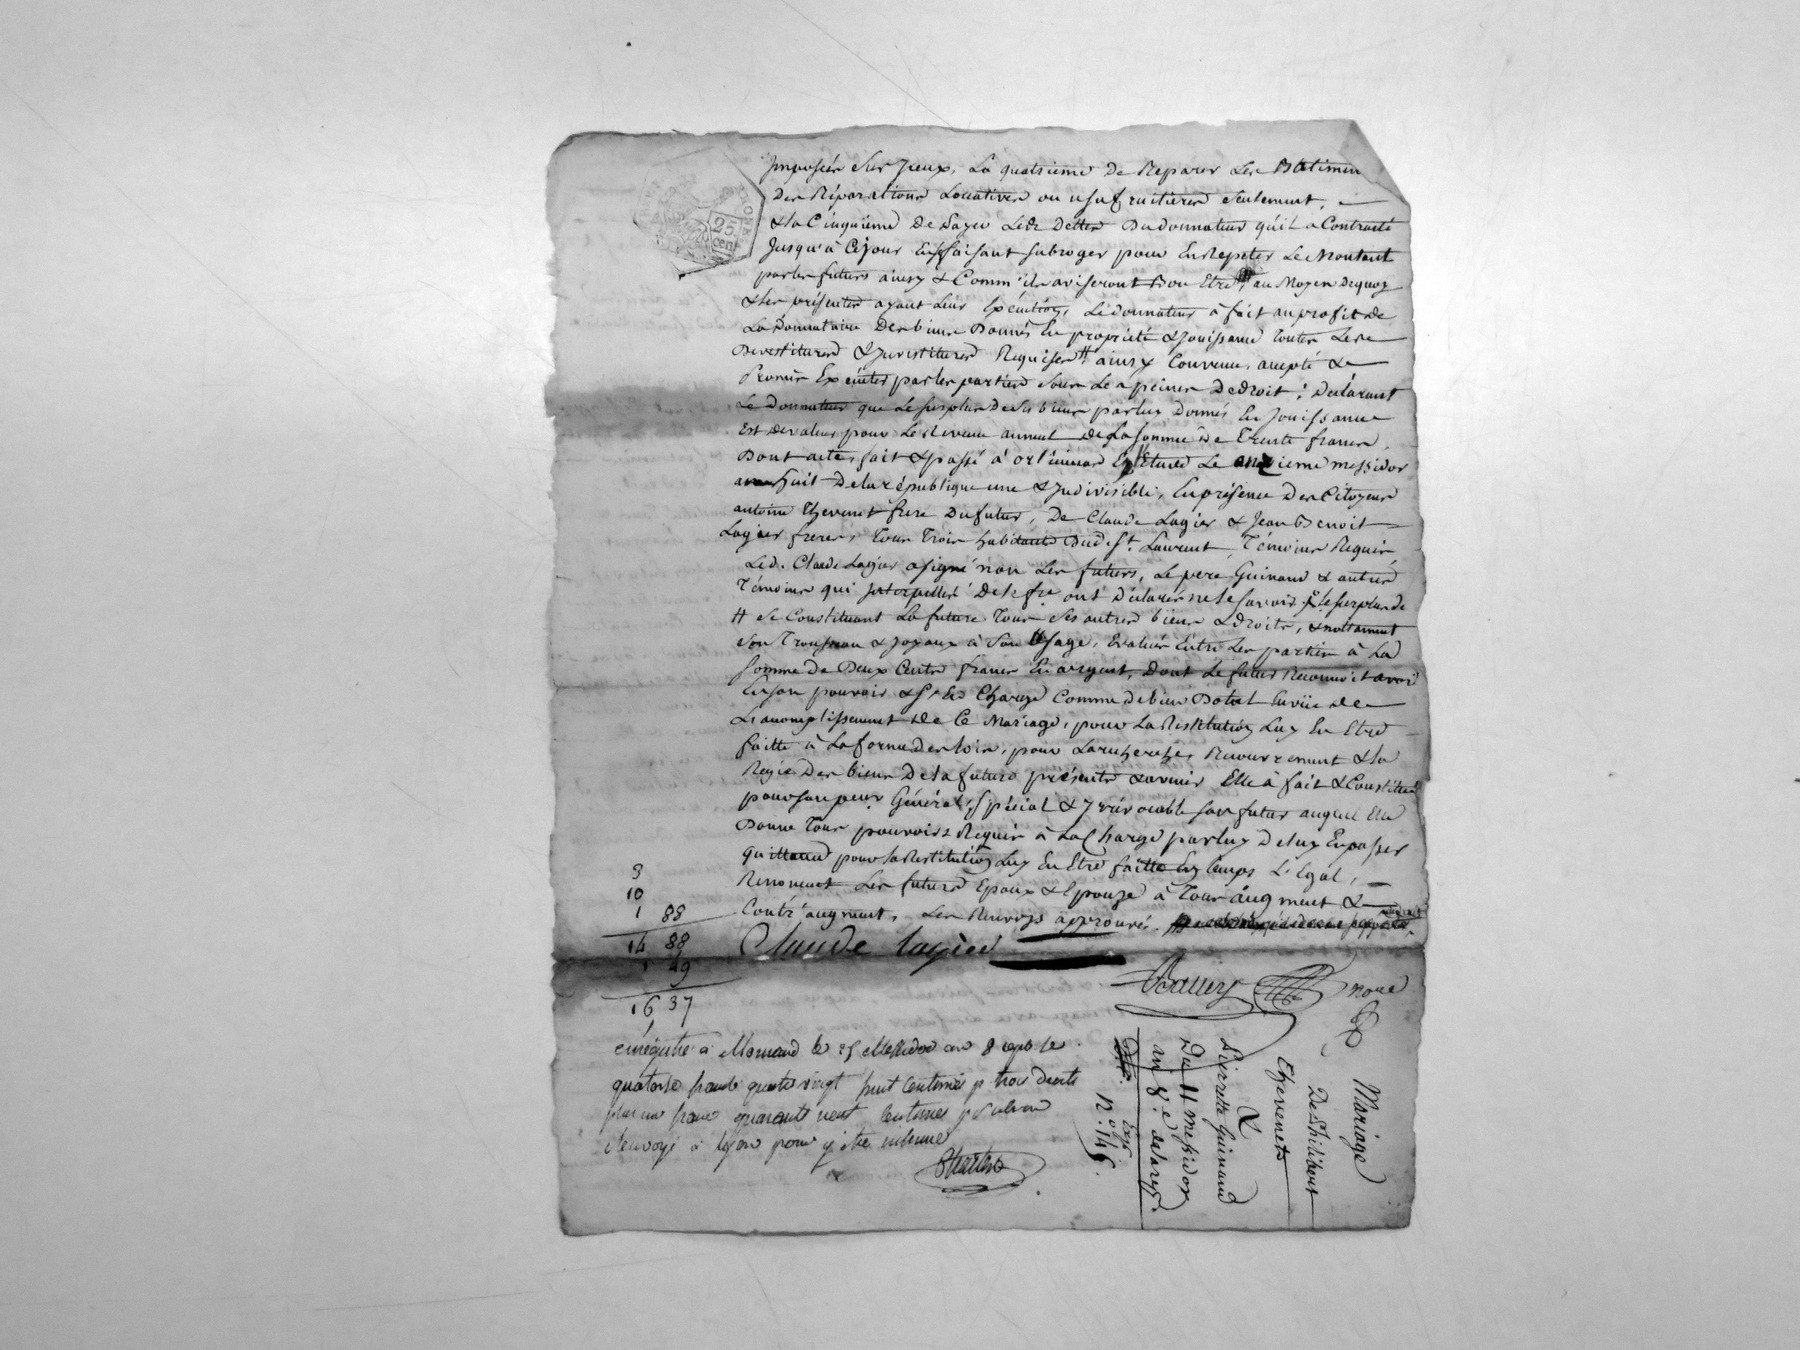 25
cen
Imposés sur Iceux, La quatrieme de Reparer Les Batimen
Des Réparations Locatives ou usufruitieres seulement,
& La Cinquieme de Payer Les Dettes Du donnateur qu'il a Contracté
Jusqu'à Cejour En faisant subroger pour En Repeter Le Montant
par les futurs ainsy & Comm'ils aviseront Bon Etre, au Moyen dequoy
& les présentes ayant Leur Exécution, Le donnateur à fait au profit de
La Donnataire Des biens Donnés En propriété & Jouissance toutes Les
Devestitures & Investitures Requises # ainsy Convenu, accepté &
Promis Exécuter par les parties sous Les peines De droit; Déclarant
Le Donnateur que Le surplus De ses biens par luy Donnés En Jouissance
Est de valeur pour Le Revenu annuel de La somme De Trente francs.
Dont acte, fait & passé à ETude Le onzieme messidor
an huit De la république une & Indivisible, En présence Des Citoyens
antoine Thevenet frere Du futur, De Claude Lagier & Jean Benoit
Lagier freres, Tous Trois habitants Dud. St. Laurent, Témoins Requis
Led. Claude Lagier a signé non Les futurs, Le pere Guinand & autres
Témoins qui Interpellés De le fre. ont Déclarés ne le savoir, Le surplus de
# Se Constituant La future Tous Ses autres biens & Droits, & nottament
son Trousseau & Joyaux à Son Usage, Evalués Entre Les parties à La
somme de Deux Cents francs En argent, Dont Le futur Reconnoit avoir
En son pouvoir & s'Est Chargé Comme de bien Dotal En vüe de
L'accomplissement De Ce Mariage, pour La Restitution Luy En Etre
faitte à La forme des Loix, pour La recherche, Recouvrement & La
Regie Des biens De La future présents & avenir, Elle à fait & Constitué
pour son peur Général, Spécial & Irrévocable son futur auquel Elle
Donne Tous pouvoirs Requis à La Charge par luy De luy En passer
quittance pour La Restitution Luy En Etre faitte En temps L'Egal,
Renoncent Les futurs Epoux & Epouze à Tous augment &
Contr'augment, Les Renvoys approuvés.
3
10
1 88
14 88
1 49
16 37
Claude lagier
nore
enrégistré à Mornand le 25 Messidor an 8 reçu
quatorse francs quatre vingt huit Centimes p. trois droits
plus un franc quarante neuf Centimes p. subon
Renvoyé à Lyon pour y être
Mariage
De Philibert
Thevenet
&
Pierrette Guinand
Du 11 messidor
an 8.e de la rep.
Exp.
N.o 146.